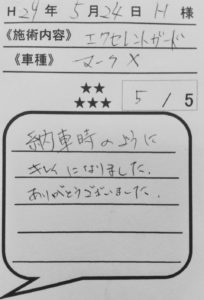 H29年 5月24日 H 様
《施術内容》 エクセレントガード
《車種》 マークX
★★
★★★ 5 / 5
納車時のように
キレイになりました。
ありがとうございました。